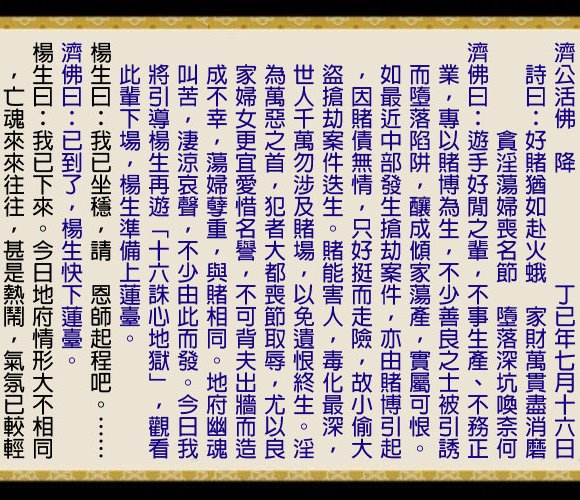 濟公活佛　降　　　　　丁巳年七月十六日
詩曰：好賭猶如赴火蛾　家財萬貫盡消磨
貪淫蕩婦喪名節　墮落深坑喚奈何
濟佛曰：遊手好閒之輩，不事生產、不務正
業，專以賭博為生，不少善良之士被引誘
而墮落陷阱，釀成傾家蕩產，實屬可恨。
如最近中部發生搶劫案件，亦由賭博引起
，因賭債無情，只好挺而走險，故小偷大
盜搶劫案件迭生。賭能害人，毒化最深，
世人千萬勿涉及賭場，以免遺恨終生。淫
為萬惡之首，犯者大都喪節取辱，尤以良
家婦女更宜愛惜名譽，不可背夫出牆而造
成不幸，蕩婦孽重，與賭相同。地府幽魂
叫苦，淒涼哀聲，不少由此而發。今日我
將引導楊生再遊「十六誅心地獄」，觀看
此輩下場，楊生準備上蓮臺。
楊生曰：我已坐穩，請　恩師起程吧。……
濟佛曰：已到了，楊生快下蓮臺。
楊生曰：我已下來。今日地府情形大不相同
，亡魂來來往往，甚是熱鬧，氣氛已較輕